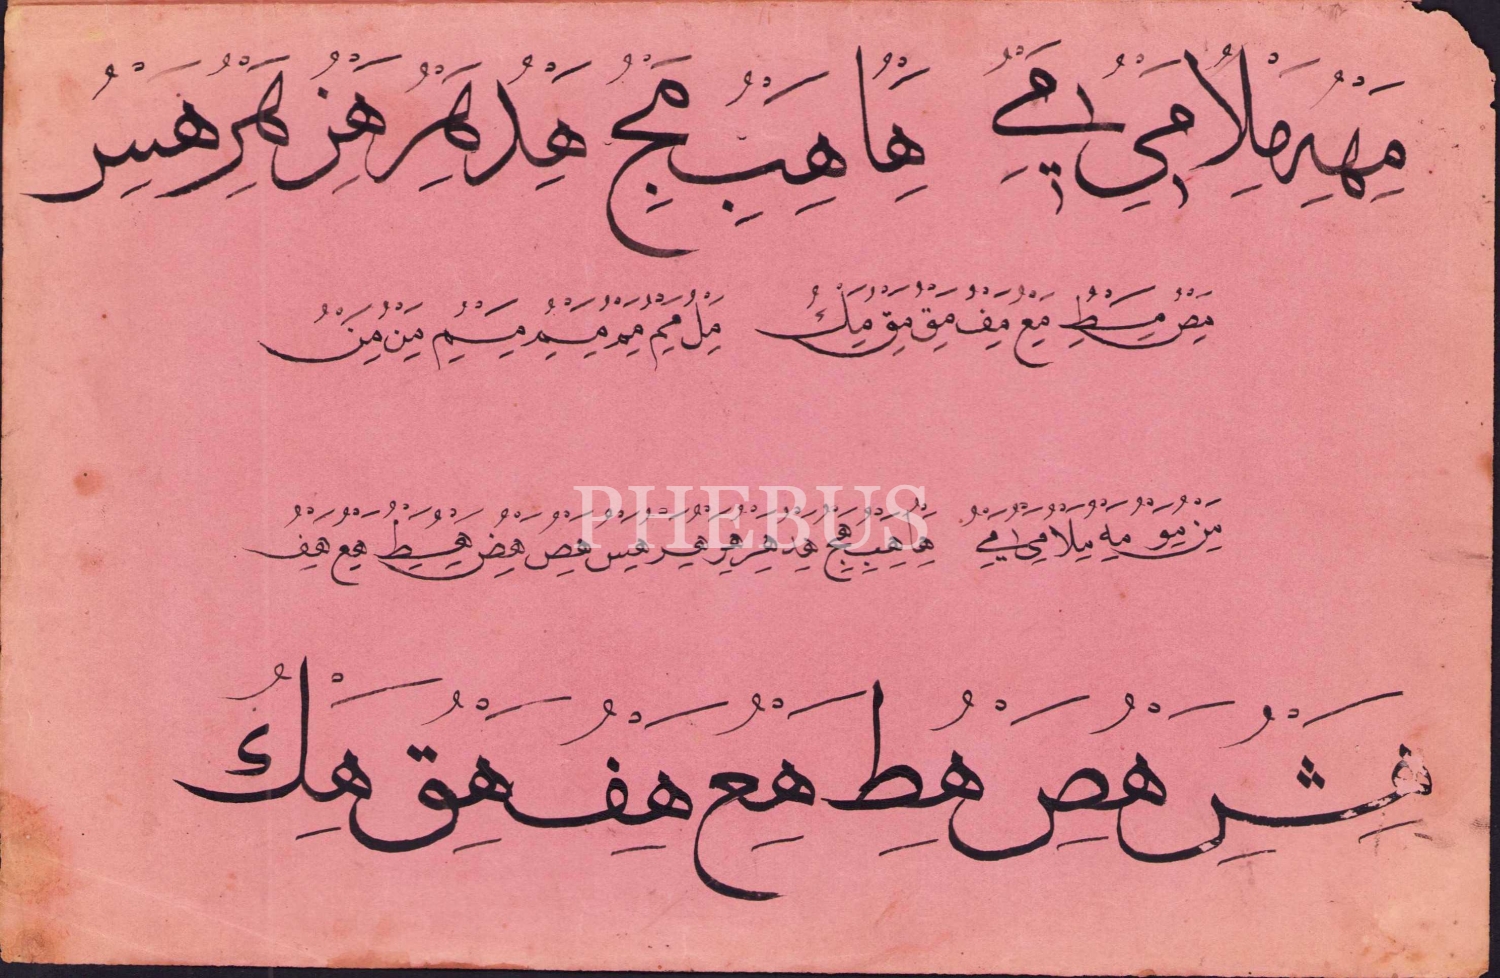 مَِهُ مَِلاُ مَِیُ مَِےُ هَِاُ هَِبُ هَِجُ هَِدُ هَِرُ هَِزُ هَِرُ هَِسُ
مَِصُ مَِطُ مَِعُ مَِفُ مَِقُ مَِقُ مَِكُ مَِلُ مَِمُ مَِمُ مَِمُ مَِمُ مَِنُ مَِنُ
PHEBUS
مَِنُ مَِوُ مَِهُ مَِلاُ مَِیُ مَِےُ هَِاُ هَِبُ هَِجُ هَِدُ هَِرُ هَِرُ هَِرُ هَِسُ هَِصُ هَِضُ هَِطُ هَِعُ هَِفُ
هَِشُ هَِصُ هَِطُ هَِعُ هَِفُ هَِقُ هَِكُ